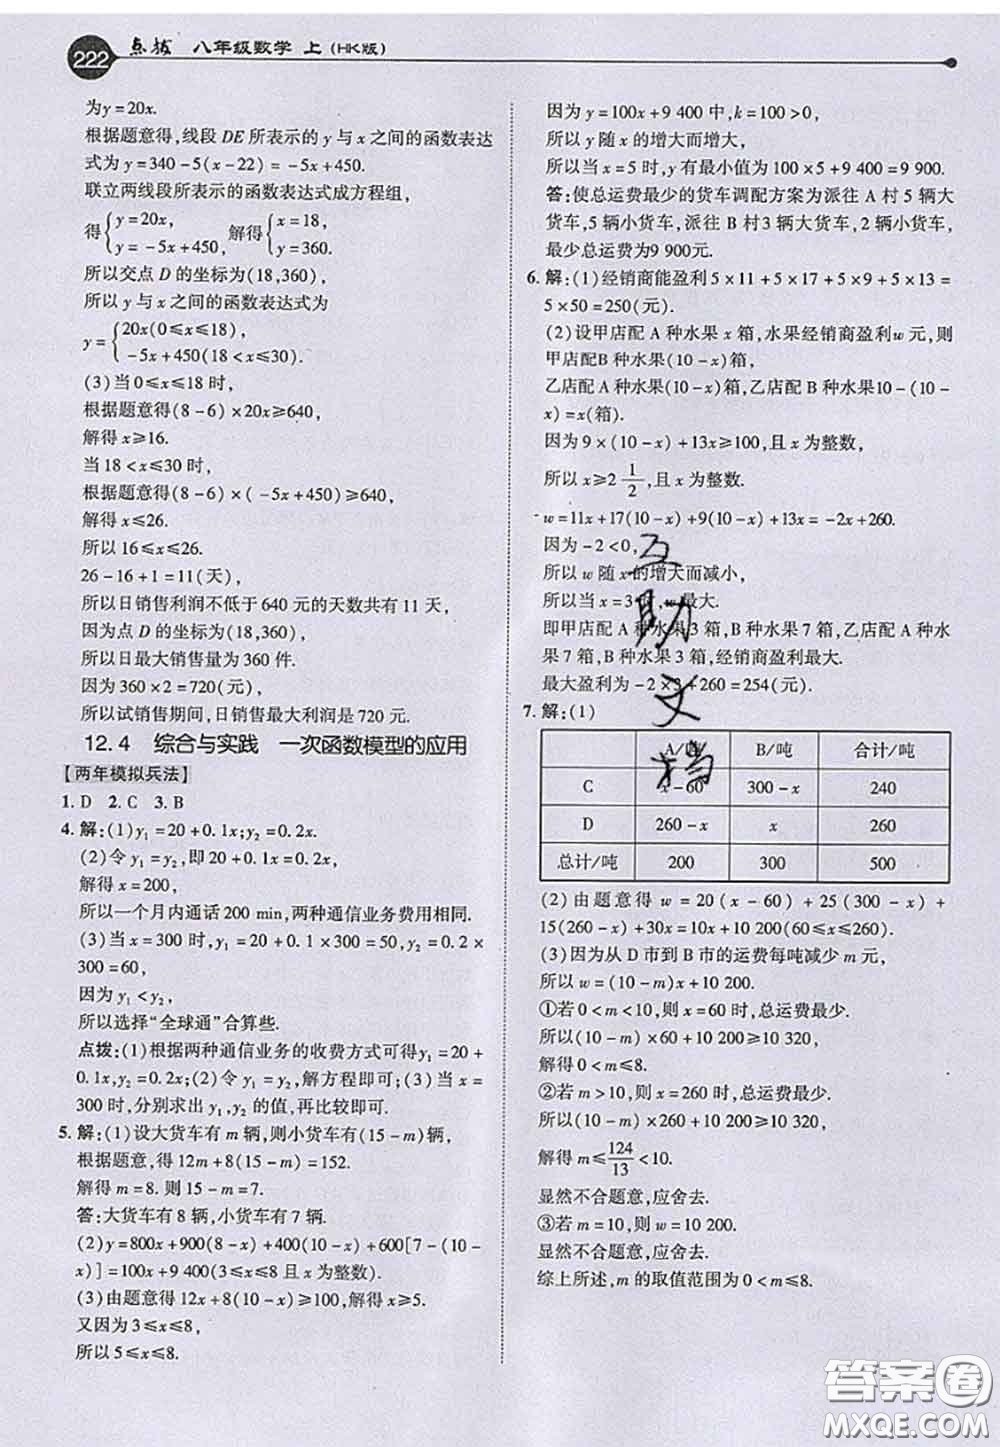 222 点拨 八年级数学 上(HK版)
为y=20x.
根据题意得,线段 DE 所表示的 y 与 x 之间的函数表达
式为 y=340-5(x-22)=-5x+450.
联立两线段所表示的函数表达式成方程组,
得{y=20x, y=-5x+450, 解得{x=18, y=360.
所以交点 D 的坐标为(18,360),
所以 y 与 x 之间的函数表达式为
y={20x(0≤x≤18), -5x+450(18<x≤30).
(3)当 0≤x≤18 时,
根据题意得(8-6)×20x≥640,
解得 x≥16.
当 18<x≤30 时,
根据题意得(8-6)×(-5x+450)≥640,
解得 x≤26.
所以 16≤x≤26.
26-16+1=11(天),
所以日销售利润不低于 640 元的天数共有 11 天,
因为点 D 的坐标为(18,360),
所以日最大销售量为 360 件.
因为 360×2=720(元),
所以试销售期间,日销售最大利润是 720 元.
12.4 综合与实践 一次函数模型的应用
【两年模拟兵法】
1. D 2. C 3. B
4. 解:(1)y₁=20+0.1x;y₂=0.2x.
(2)令 y₁=y₂,即 20+0.1x=0.2x,
解得 x=200,
所以一个月内通话 200 min,两种通信业务费用相同.
(3)当 x=300 时,y₁=20+0.1×300=50,y₂=0.2×
300=60,
因为 y₁<y₂,
所以选择“全球通”合算些.
点拨:(1)根据两种通信业务的收费方式可得y₁=20+
0.1x,y₂=0.2x;(2)令 y₁=y₂,解方程即可;(3)当 x=
300 时,分别求出 y₁,y₂ 的值,再比较即可.
5. 解:(1)设大货车有 m 辆,则小货车有(15-m)辆,
根据题意,得 12m+8(15-m)=152.
解得 m=8. 则 15-m=7.
答:大货车有 8 辆,小货车有 7 辆.
(2)y=800x+900(8-x)+400(10-x)+600[7-(10-
x)]=100x+9 400(3≤x≤8 且 x 为整数).
(3)由题意得 12x+8(10-x)≥100,解得 x≥5.
又因为 3≤x≤8,
所以 5≤x≤8.
因为 y=100x+9 400 中,k=100>0,
所以 y 随 x 的增大而增大,
所以当 x=5 时,y 有最小值为 100×5+9 400=9 900.
答:使总运费最少的货车调配方案为派往 A 村 5 辆大
货车,5 辆小货车,派往 B 村 3 辆大货车,2 辆小货车,
最少总运费为9 900元.
6. 解:(1)经销商能盈利 5×11+5×17+5×9+5×13=
5×50=250(元).
(2)设甲店配 A 种水果 x 箱,水果经销商盈利w元,则
甲店配B 种水果(10-x)箱,
乙店配 A 种水果(10-x)箱,乙店配 B 种水果10-(10-
x)=x(箱).
因为 9×(10-x)+13x≥100,且 x 为整数,
所以 x≥2 1/2,且 x 为整数.
w=11x+17(10-x)+9(10-x)+13x=-2x+260.
因为 -2<0,
所以 w 随 x 的增大而减小,
所以当 x=3 时,w 最大.
即甲店配 A 种水果 3 箱,B 种水果 7 箱,乙店配 A 种水
果 7 箱,B 种水果 3 箱,经销商盈利最大.
最大盈利为 -2×3+260=254(元).
7. 解:(1)
A/吨 B/吨 合计/吨
C x-60 300-x 240
D 260-x x 260
总计/吨 200 300 500
(2)由题意得 w=20(x-60)+25(300-x)+
15(260-x)+30x=10x+10 200(60≤x≤260).
(3)因为从 D 市到 B 市的运费每吨减少 m 元,
所以 w=(10-m)x+10 200.
①若 0<m<10,则 x=60 时,总运费最少.
所以(10-m)×60+10 200≥10 320,
解得 0<m≤8.
②若 m>10,则 x=260 时,总运费最少.
所以(10-m)×260+10 200≥10 320,
解得 m≤124/13<10.
显然不合题意,应舍去.
③若 m=10,则 w=10 200.
显然不合题意,应舍去.
综上所述,m 的取值范围为 0<m≤8.
互助文档
答案圈
MXQE.COM